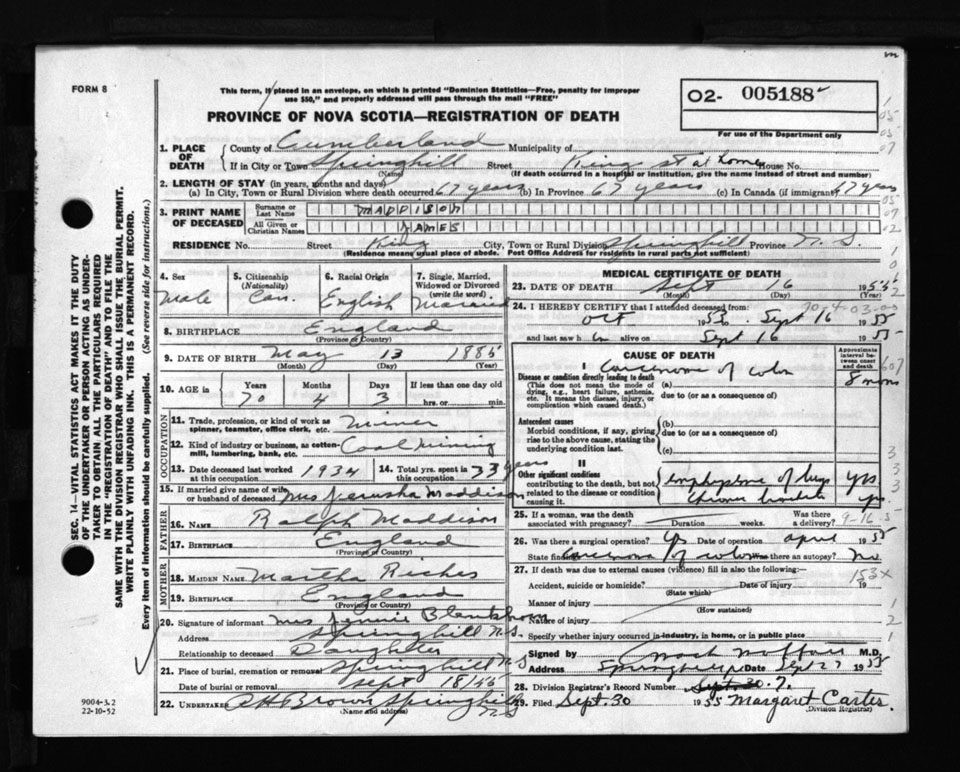 FORM 8
This form, if placed in an envelope, on which is printed "Dominion Statistics—Free, penalty for improper
use $50," and properly addressed will pass through the mail "FREE"
PROVINCE OF NOVA SCOTIA—REGISTRATION OF DEATH
02- 005188
For use of the Department only
SEC. 14.—VITAL STATISTICS ACT MAKES IT THE DUTY
OF THE UNDERTAKER OR PERSON ACTING AS UNDER-
TAKER TO OBTAIN ALL THE PARTICULARS REQUIRED
IN THE "REGISTRATION OF DEATH" AND TO FILE THE
SAME WITH THE DIVISION REGISTRAR WHO SHALL ISSUE THE BURIAL PERMIT.
WRITE PLAINLY WITH UNFADING INK. THIS IS A PERMANENT RECORD.
Every item of information should be carefully supplied. (See reverse side for instructions.)
1. PLACE OF DEATH
County of Cumberland Municipality of
If in City or Town Springhill Street King St at home House No.
(Name) (If death occurred in a hospital or institution, give the name instead of street and number)
2. LENGTH OF STAY (in years, months and days)
(a) In City, Town or Rural Division where death occurred 67 years (b) In Province 67 years (c) In Canada (if immigrant) 67 years
3. PRINT NAME OF DECEASED
Surname or Last Name MADDISON
All Given or Christian Names JAMES
RESIDENCE No. Street King City, Town or Rural Division Springhill Province N.S.
(Residence means usual place of abode. Post Office Address for residents in rural parts not sufficient)
4. Sex Male
5. Citizenship (Nationality) Can.
6. Racial Origin English
7. Single, Married, Widowed or Divorced (write the word) Married
8. BIRTHPLACE England
(Province or Country)
9. DATE OF BIRTH May 13 1885
(Month) (Day) (Year)
10. AGE in Years 70 Months 4 Days 3 If less than one day old hrs. or min.
OCCUPATION
11. Trade, profession, or kind of work as spinner, teamster, office clerk, etc. Miner
12. Kind of industry or business, as cotton-mill, lumbering, bank, etc. Coal mining
13. Date deceased last worked at this occupation 1934
14. Total yrs. spent in this occupation 33 years
15. If married give name of wife or husband of deceased Mrs Jerusha Maddison
FATHER
16. NAME Ralph Maddison
17. BIRTHPLACE England
(Province or Country)
MOTHER
18. MAIDEN NAME Martha Riches
19. BIRTHPLACE England
(Province or Country)
20. Signature of informant Mrs Jennie
Address Springhill N.S.
Relationship to deceased Daughter
21. Place of burial, cremation or removal Springhill N S
Date of burial or removal Sept 18/55
22. UNDERTAKER A H Brown Springhill N S
(Name and address)
9004-3.2
22-10-52
MEDICAL CERTIFICATE OF DEATH
23. DATE OF DEATH Sept 16 1955
(Month) (Day) (Year)
24. I HEREBY CERTIFY that I attended deceased from:
Oct 53 to Sept 16 1955
and last saw h im alive on Sept 16 1955
CAUSE OF DEATH
Approximate interval between onset and death
I
Disease or condition directly leading to death
(This does not mean the mode of dying, e.g., heart failure, asthenia, etc. It means the disease, injury, or complication which caused death.)
(a) Carcinoma of colon 8 mons
due to (or as a consequence of)
Antecedent causes
Morbid conditions, if any, giving rise to the above cause, stating the underlying condition last.
(b)
due to (or as a consequence of)
(c)
II
Other significant conditions
contributing to the death, but not related to the disease or condition causing it.
Emphysema of lungs yrs
Chronic bronchitis yrs
25. If a woman, was the death associated with pregnancy? Duration weeks. Was there a delivery?
26. Was there a surgical operation? Yes Date of operation April 1955
State findings Carcinoma of colon Was there an autopsy? No
27. If death was due to external causes (violence) fill in also the following:—
Accident, suicide or homicide? Date of injury 19
(State which)
Manner of injury
(How sustained)
Nature of injury
Specify whether injury occurred in industry, in home, or in public place
Signed by M.D.
Address Springhill Date Sept 27 1955
28. Division Registrar's Record Number Sept. 30. 7.
29. Filed Sept. 30 1955 Margaret Carter
(Division Registrar)